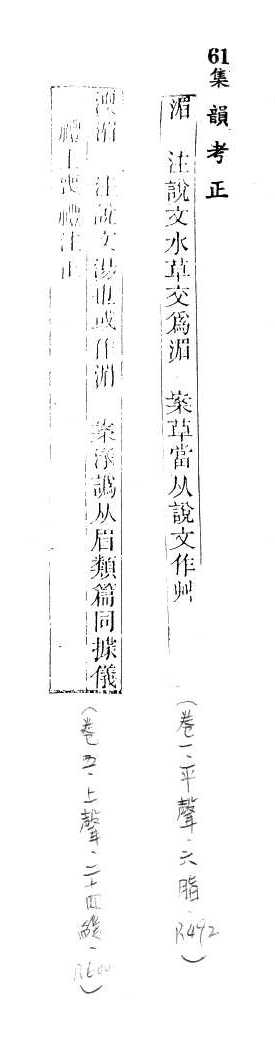 61集韻考正
湄 注說文水草交爲湄 案草當从說文作艸
(卷一·平聲·六脂·R492
渜湄 注說文湯也或作湄 案渜譌从眉類篇同據儀
禮士喪禮注正
(卷五·上聲·二十四緩·